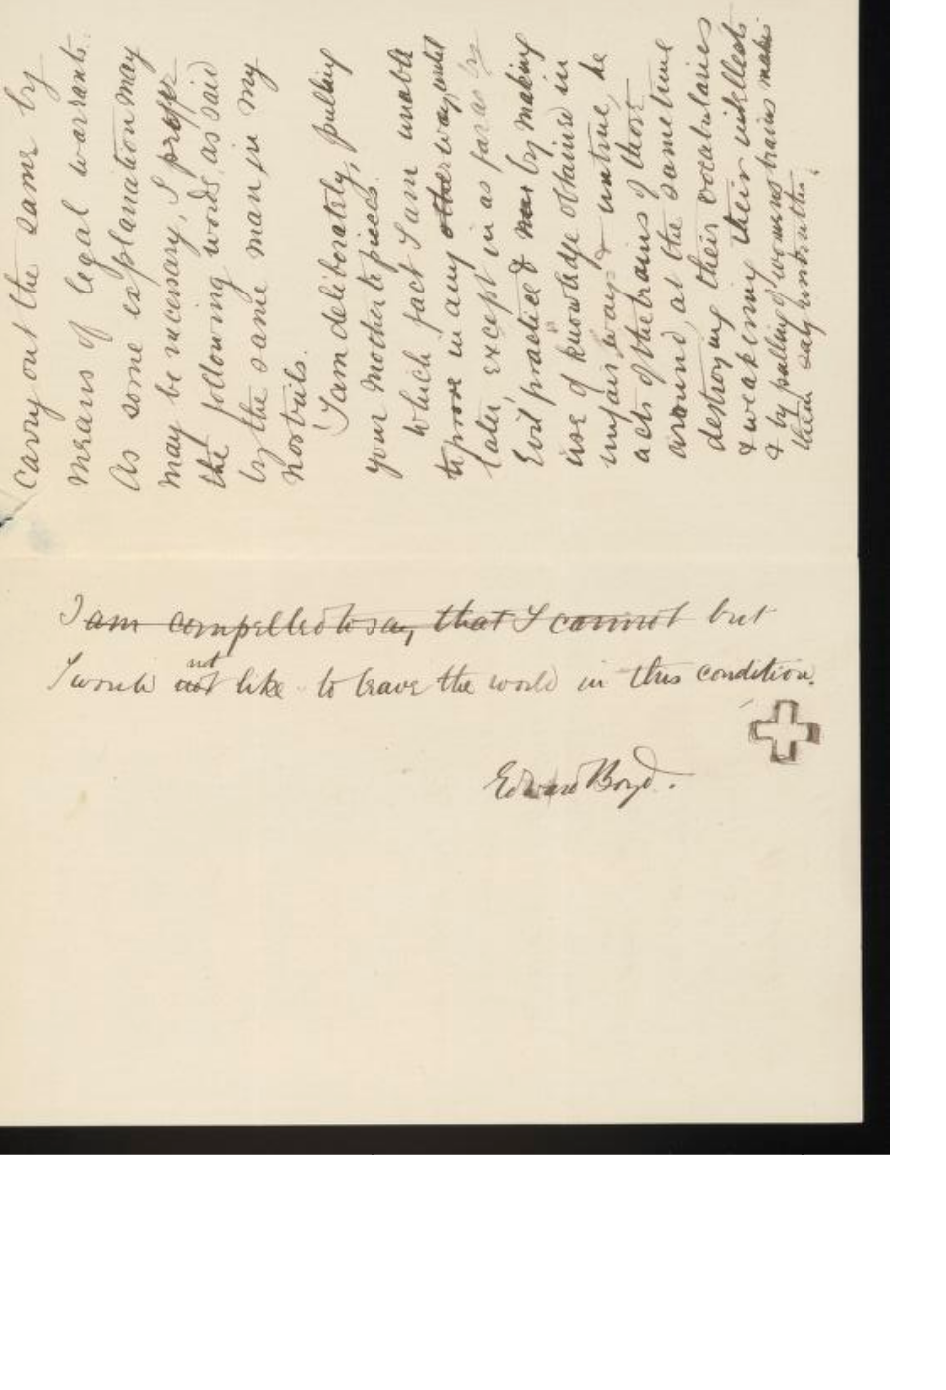 carry out the same by
means of legal warrants.
As some explanation may
may be necessary, I proffer
the following words, as said
by the same man, in my
nostrils.
'I am deliberately, pulling
your mother to pieces.
which fact I am unable
to prove in any other way, until
later, except in as far as by
Evil practice & by making
use of knowledge obtained in
unfair ways & untrue, he
acts of the brains of those
around, at the same time
destroying their vocabularies
& weakening their intellects
& by pulling of womens brains makes
them
I am compelled to say, that I cannot but
I would not like to leave the world in this condition.
Edward Boyd.